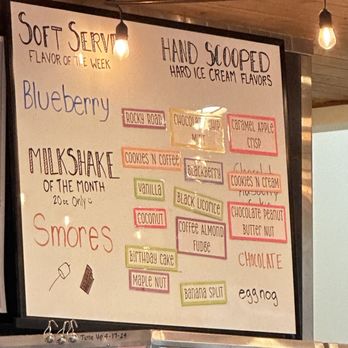 SOFT SERVE
FLAVOR OF THE WEEK
Blueberry
MILKSHAKE
OF THE MONTH
20oz Only
Smores
HAND SCOOPED
HARD ICE CREAM FLAVORS
ROCKY ROAD
COOKIES 'N COFFEE
VANILLA
COCONUT
BIRTHDAY CAKE
MAPLE NUT
CHOCOLATE CHIP
MINT
BLACKBERRY
BLACK LICORICE
COFFEE ALMOND
FUDGE
BANANA SPLIT
CARAMEL APPLE
CRISP
Chocolate
COOKIES 'N CREAM
CHOCOLATE PEANUT
BUTTER NUT
CHOCOLATE
eggnog